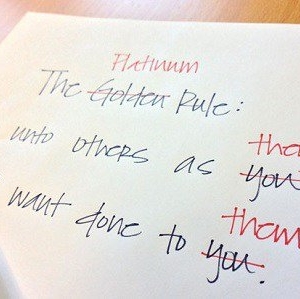 Platinum
The Golden Rule:
unto others as you
want done to you.
them